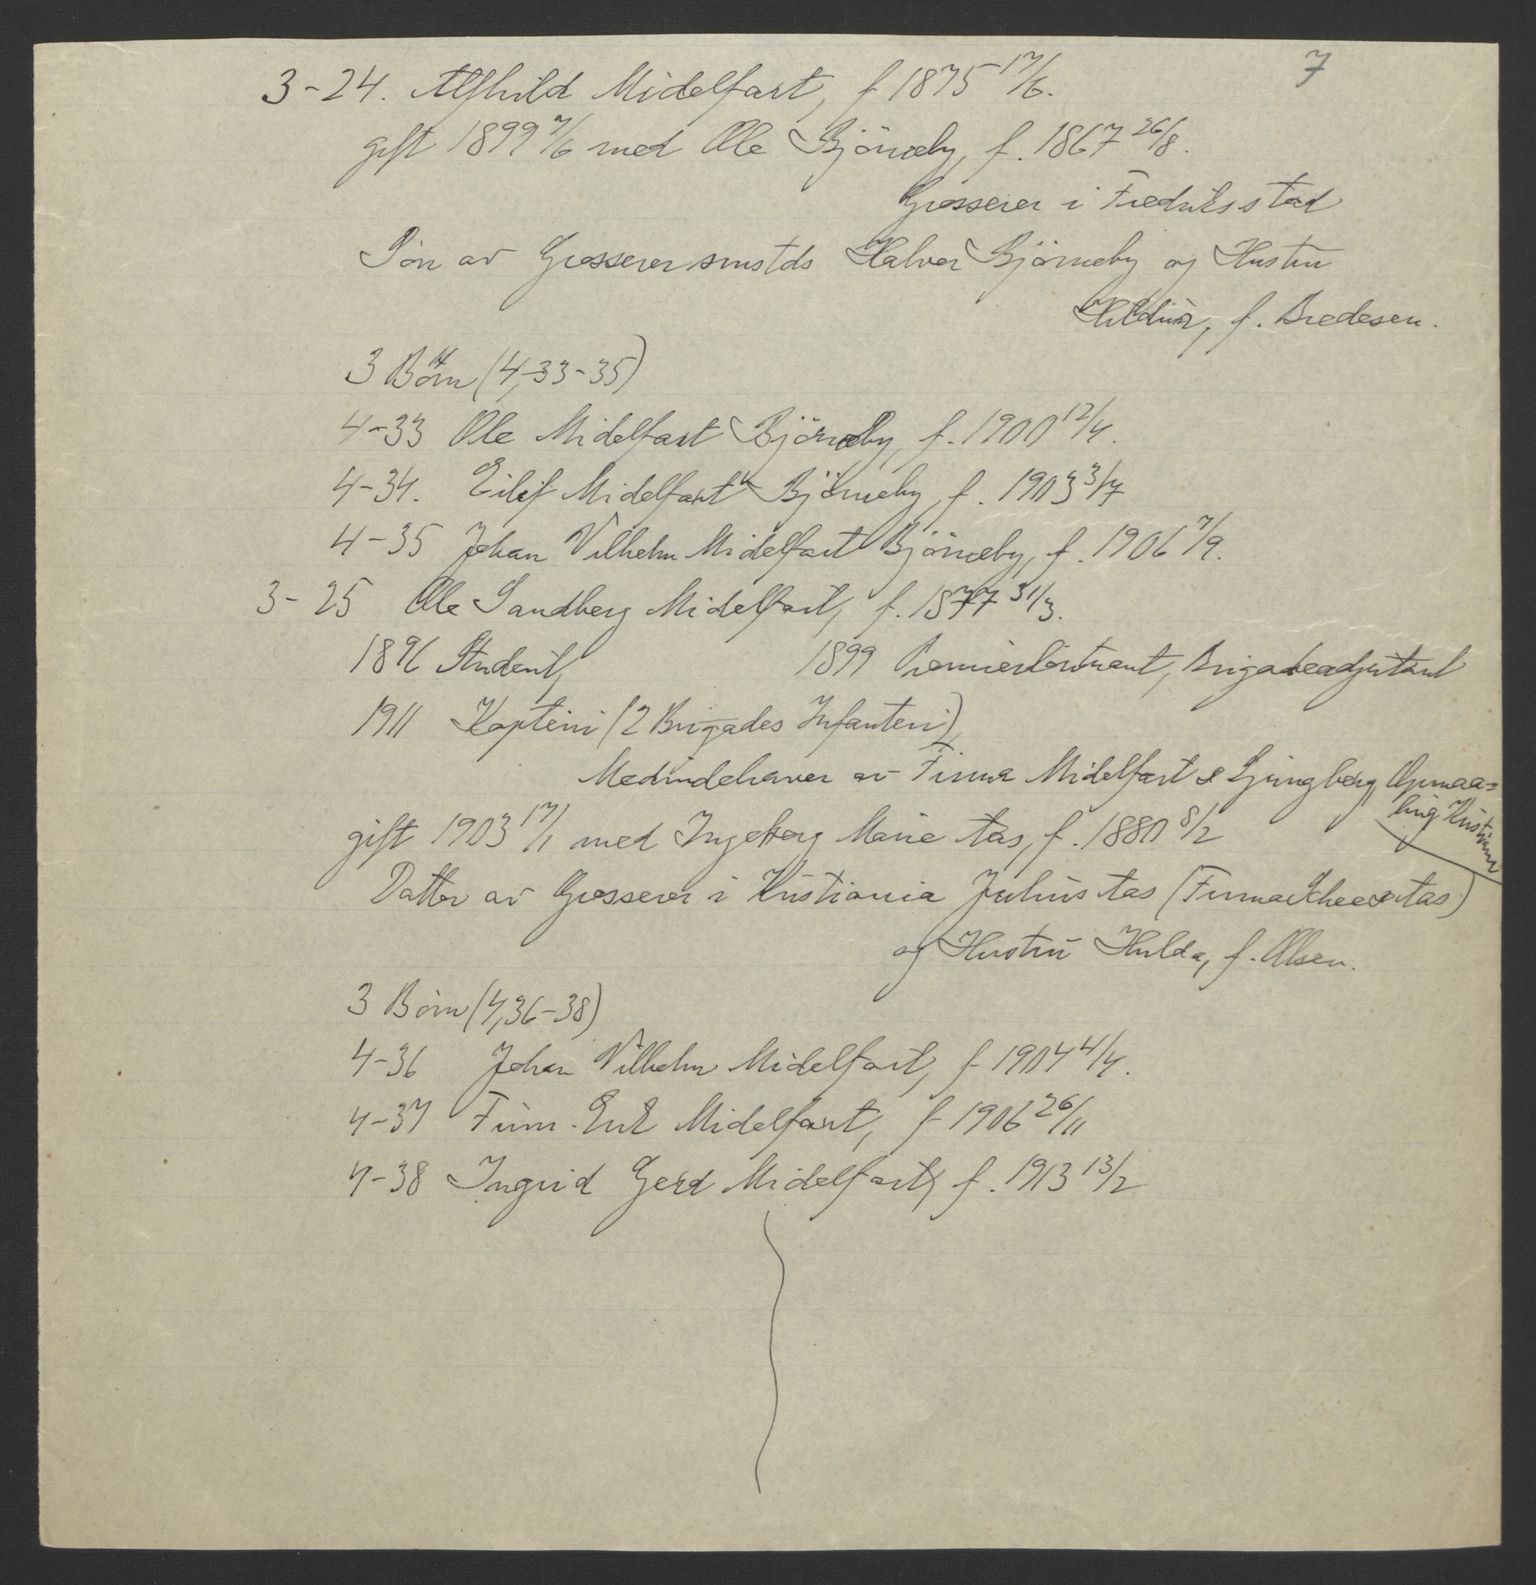 7
3-24. Alfhild Midelfart, f 1875 17/6.
gift 1899 7/6 med Ole Björneby, f. 1867 26/8.
Grosserer i Fredriksstad
Sön av Grosserer smstds Halvor Björneby og Hustru
f. Bredesen.
3 Börn (4,33-35)
4-33 Ole Midelfart Björneby, f. 1900 12/4.
4-34. Eilif Midelfart Björneby, f. 1903 3/7
4-35 Johan Vilhelm Midelfart Björneby, f. 1906 7/9.
3-25 Ole Sandberg Midelfart, f. 1877 31/3.
1896 Student, 1899 Premierlöitnant, Brigadeadjutant
1911 Kaptein (2 Brigades Infanteri)
Medindehaver av Firma Midelfart & Ljungberg, Opmaa=
ling Kristiania
gift 1903 17/1 med Ingeborg Marie Aas, f. 1880 8/2
Datter av Grosserer i Kristiania Julius Aas (Firma Scheer & Aas)
og Hustru Hulda, f. Olsen.
3 Börn (4,36-38)
4-36 Johan Vilhelm Midelfart, f 1904 4/4.
4-37 Finn Erik Midelfart, f 1906 26/11
4-38 Ingrid Gerd Midelfart, f. 1913 13/2